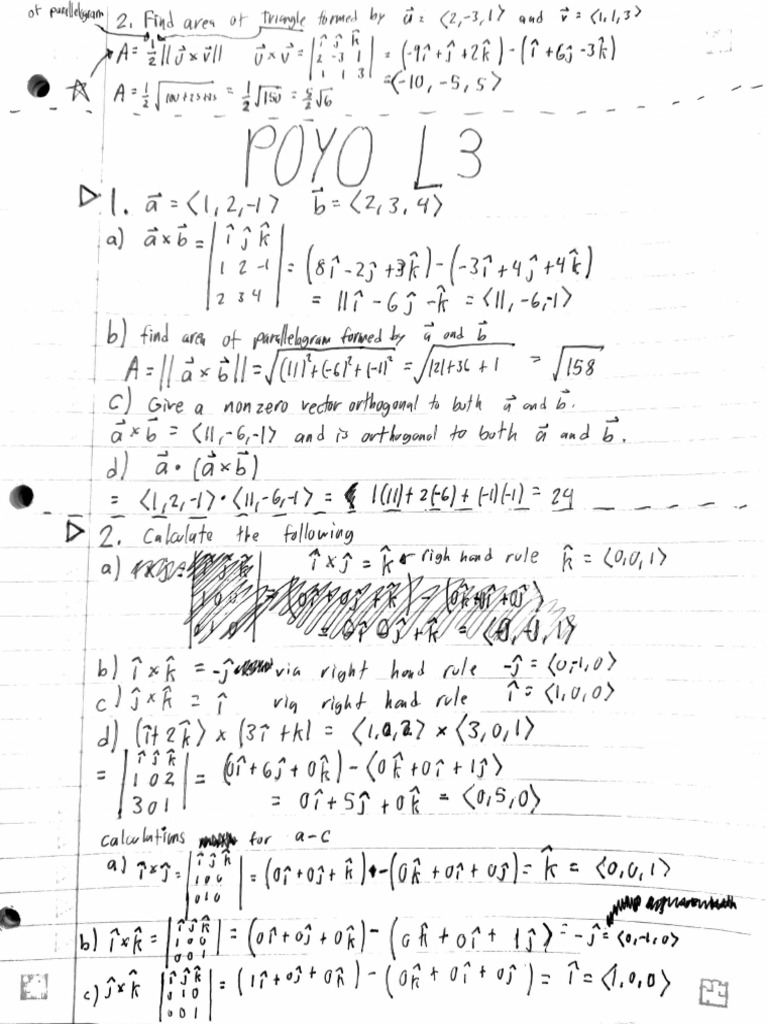 of parallelogram
2. Find area of triangle formed by u⃗ = <2,-3,1> and v⃗ = <1,1,3>
A = 1/2 ||u⃗ x v⃗|| u⃗ x v⃗ = |î ĵ k̂ / 2 -3 1 / 1 1 3| = (-9î + ĵ + 2k̂) - (î + 6ĵ - 3k̂)
= <-10, -5, 5>
☆ A = 1/2 √(100+25+25) = 1/2 √150 = 5/2 √6
POYO L3
▷ 1. a⃗ = <1,2,-1> b⃗ = <2,3,4>
a) a⃗ x b⃗ = |î ĵ k̂ / 1 2 -1 / 2 3 4| = (8î - 2ĵ + 3k̂) - (-3î + 4ĵ + 4k̂)
= 11î - 6ĵ - k̂ = <11,-6,-1>
b) find area of parallelogram formed by a⃗ and b⃗
A = ||a⃗ x b⃗|| = √((11)² + (-6)² + (-1)²) = √(121+36+1) = √158
c) Give a nonzero vector orthogonal to both a⃗ and b⃗.
a⃗ x b⃗ = <11,-6,-1> and is orthogonal to both a⃗ and b⃗.
d) a⃗ • (a⃗ x b⃗)
= <1,2,-1> • <11,-6,-1> = 1(11) + 2(-6) + (-1)(-1) = 24
▷ 2. Calculate the following
a) î x ĵ = k̂ ← righ hand rule k̂ = <0,0,1>
b) î x k̂ = -ĵ via right hand rule -ĵ = <0,-1,0>
c) ĵ x k̂ = î via right hand rule î = <1,0,0>
d) (î + 2k̂) x (3î + k) = <1,0,2> x <3,0,1>
= |î ĵ k̂ / 1 0 2 / 3 0 1| = (0î + 6ĵ + 0k̂) - (0k̂ + 0î + 1ĵ)
= 0î + 5ĵ + 0k̂ = <0,5,0>
calculations for a-c
a) î x ĵ = |î ĵ k̂ / 1 0 0 / 0 1 0| = (0î + 0ĵ + k̂) - (0k̂ + 0î + 0ĵ) = k̂ = <0,0,1>
b) î x k̂ = |î ĵ k̂ / 1 0 0 / 0 0 1| = (0î + 0ĵ + 0k̂) - (0k̂ + 0î + 1ĵ) = -ĵ = <0,-1,0>
c) ĵ x k̂ |î ĵ k̂ / 0 1 0 / 0 0 1| = (1î + 0ĵ + 0k̂) - (0k̂ + 0î + 0ĵ) = î = <1,0,0>